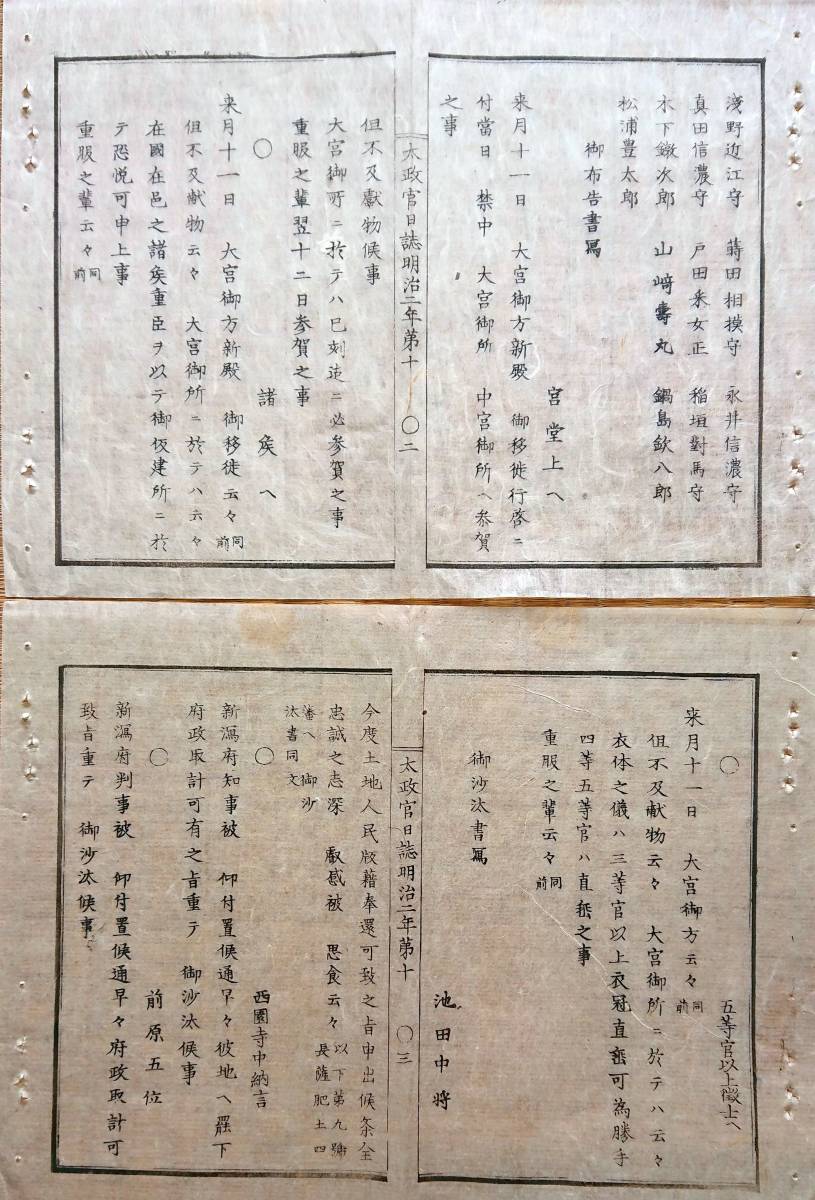 淺野近江守　蒔田相摸守　永井信濃守
真田信濃守　戸田采女正　稲垣對馬守
木下鐓次郎　山﨑壽丸　鍋島欽八郎
松浦豊太郎
御布告書寫
宮堂上へ
来月十一日　大宮御方新殿　御移徙行啓ニ
付當日　禁中　大宮御所　中宮御所ヘ参賀
之事
太政官日誌明治二年第十　〇二
但不及獻物候事
大宮御所ニ於テハ巳刻迄ニ必参賀之事
重服之輩翌十二日参賀之事
〇　諸矦ヘ
来月十一日　大宮御方新殿　御移徙云々同前
但不及献物云々　大宮御所ニ於テハ云々
在國在邑之諸矦重臣ヲ以テ御仮建所ニ於
テ恐悦可申上事
重服之輩云々同前
〇　五等官以上徴士ヘ
来月十一日　大宮御方云々同前
但不及献物云々　大宮御所ニ於テハ云々
衣体之儀ハ三等官以上衣冠直垂可為勝手
四等五等官ハ直垂之事
重服之輩云々同前
御沙汰書寫
池田中将
太政官日誌明治二年第十　〇三
今度土地人民版藉奉還可致之旨申出候条全
忠誠之志深　叡感被　思食云々以下第九號長薩肥土四
藩ヘ御沙汰書同文
〇　西園寺中納言
新潟府知事被　仰付置候通早々彼地ヘ罷下
府政取計可有之旨重テ　御沙汰候事
〇　前原五位
新潟府判事被　仰付置候通早々府政取計可
致旨重テ　御沙汰候事